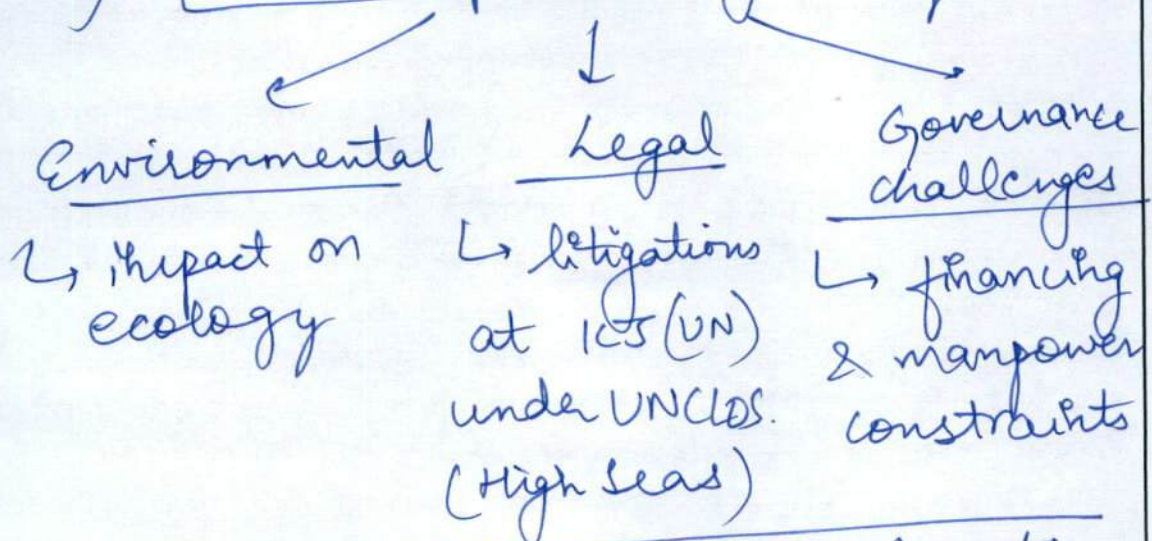 Environmental
↳ impact on
ecology
Legal
↳ litigations
at ICJ (UN)
under UNCLOS.
(High Seas)
Governance
challenges
↳ financing
& manpower
constraints